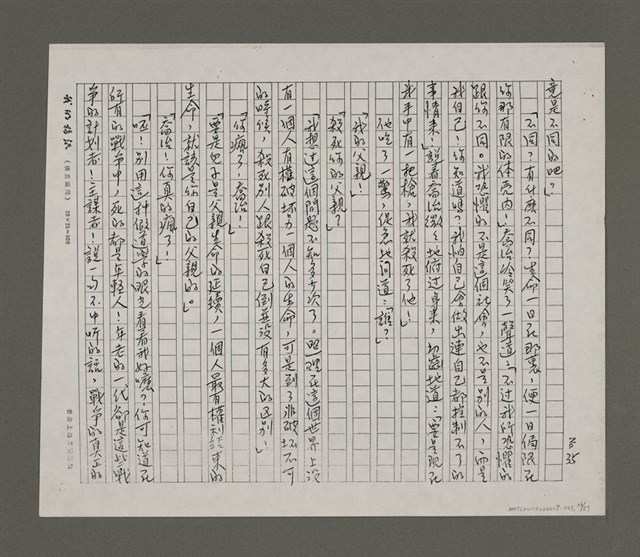 竟是不同的吧？」
「不同？有什麼不同？生命一日在那裏，便一日侷限在
你那有限的体壳内！」喬治冷哭了一聲道：「不过我所恐懼的
跟你不同。我恐懼的不是這個社會，也不是別的人，而是
我自己！你知道嗎？我怕自己會做出連自己都控制不了的
事情來！」說着喬治微微地俯过身來，切齒地道：「要是現在
我手中有一把槍，我就殺死了他！」
他吃了一驚，促急地问道：「誰？」
「我的父親！」
「殺死你的父親？」
「我想过這個問題不知多少次了。照理在這個世界上沒
有一個人有權破坏另一個人的生命，可是到了非破坏不可
的時候，殺死別人跟殺死自己倒並沒有多大的区别！」
「你瘋了，喬治！」
「要是兒子是父親生命的延續，一個人最有權利結束的
生命，就該是你自己的父親的。」
「喬治！你真的瘋了！」
「唔！別用這种假道學的眼光看着我好嗎？你可知道在
所有的戰争中，死的都是年輕人！年老的一代卻是這些戰
争的計划者！主謀者！說一句不中听的話，戰争的真正的
(偉氏稿用) 20×20=400
3
35